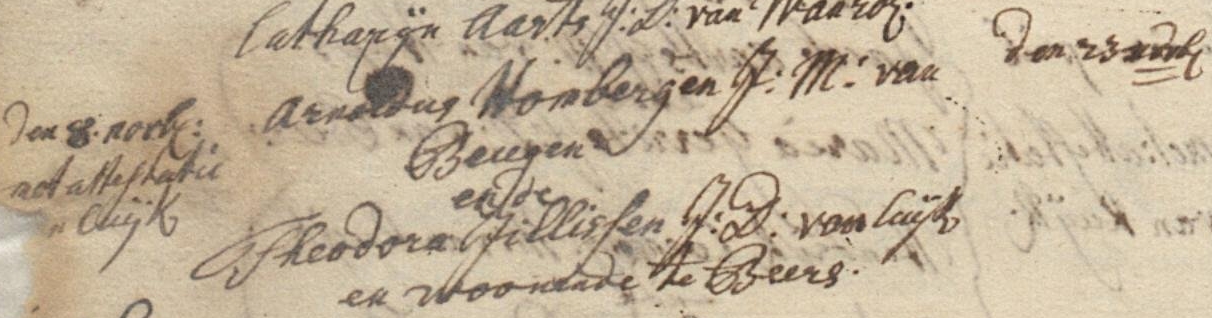 Catharijn Aarts J: D: van Wanroij.
den 23 novb
Arnoldus Hombergen J: M: van
Beugen
ende
Theodora Jillissen J: D: van Cuijk
en woonende te Beers.
den 8. novb:
met attestatie
n Cuijk